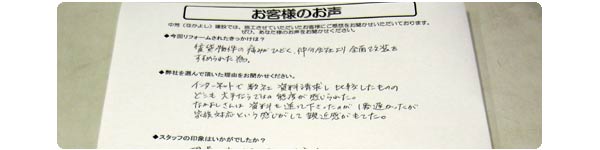 お客様のお声
中芳（なかよし）建設では、施工させていただいたお客様にご感想をお聞かせいただいております。
ぜひ、あなた様のお声をお聞かせください。
◆今回リフォームされたきっかけは？
賃貸物件の痛みがひどく、仲介会社より全面改装を
すすめられた為。
◆弊社を選んで頂いた理由をお聞かせください。
インターネットで数社に資料請求し比較したものの
どこも大手ならではの態度が感じられた。
なかよしさんは資料も送って下さったのが1番遅かったが
家族対応という感じがして親近感がもてた。
◆スタッフの印象はいかがでしたか？